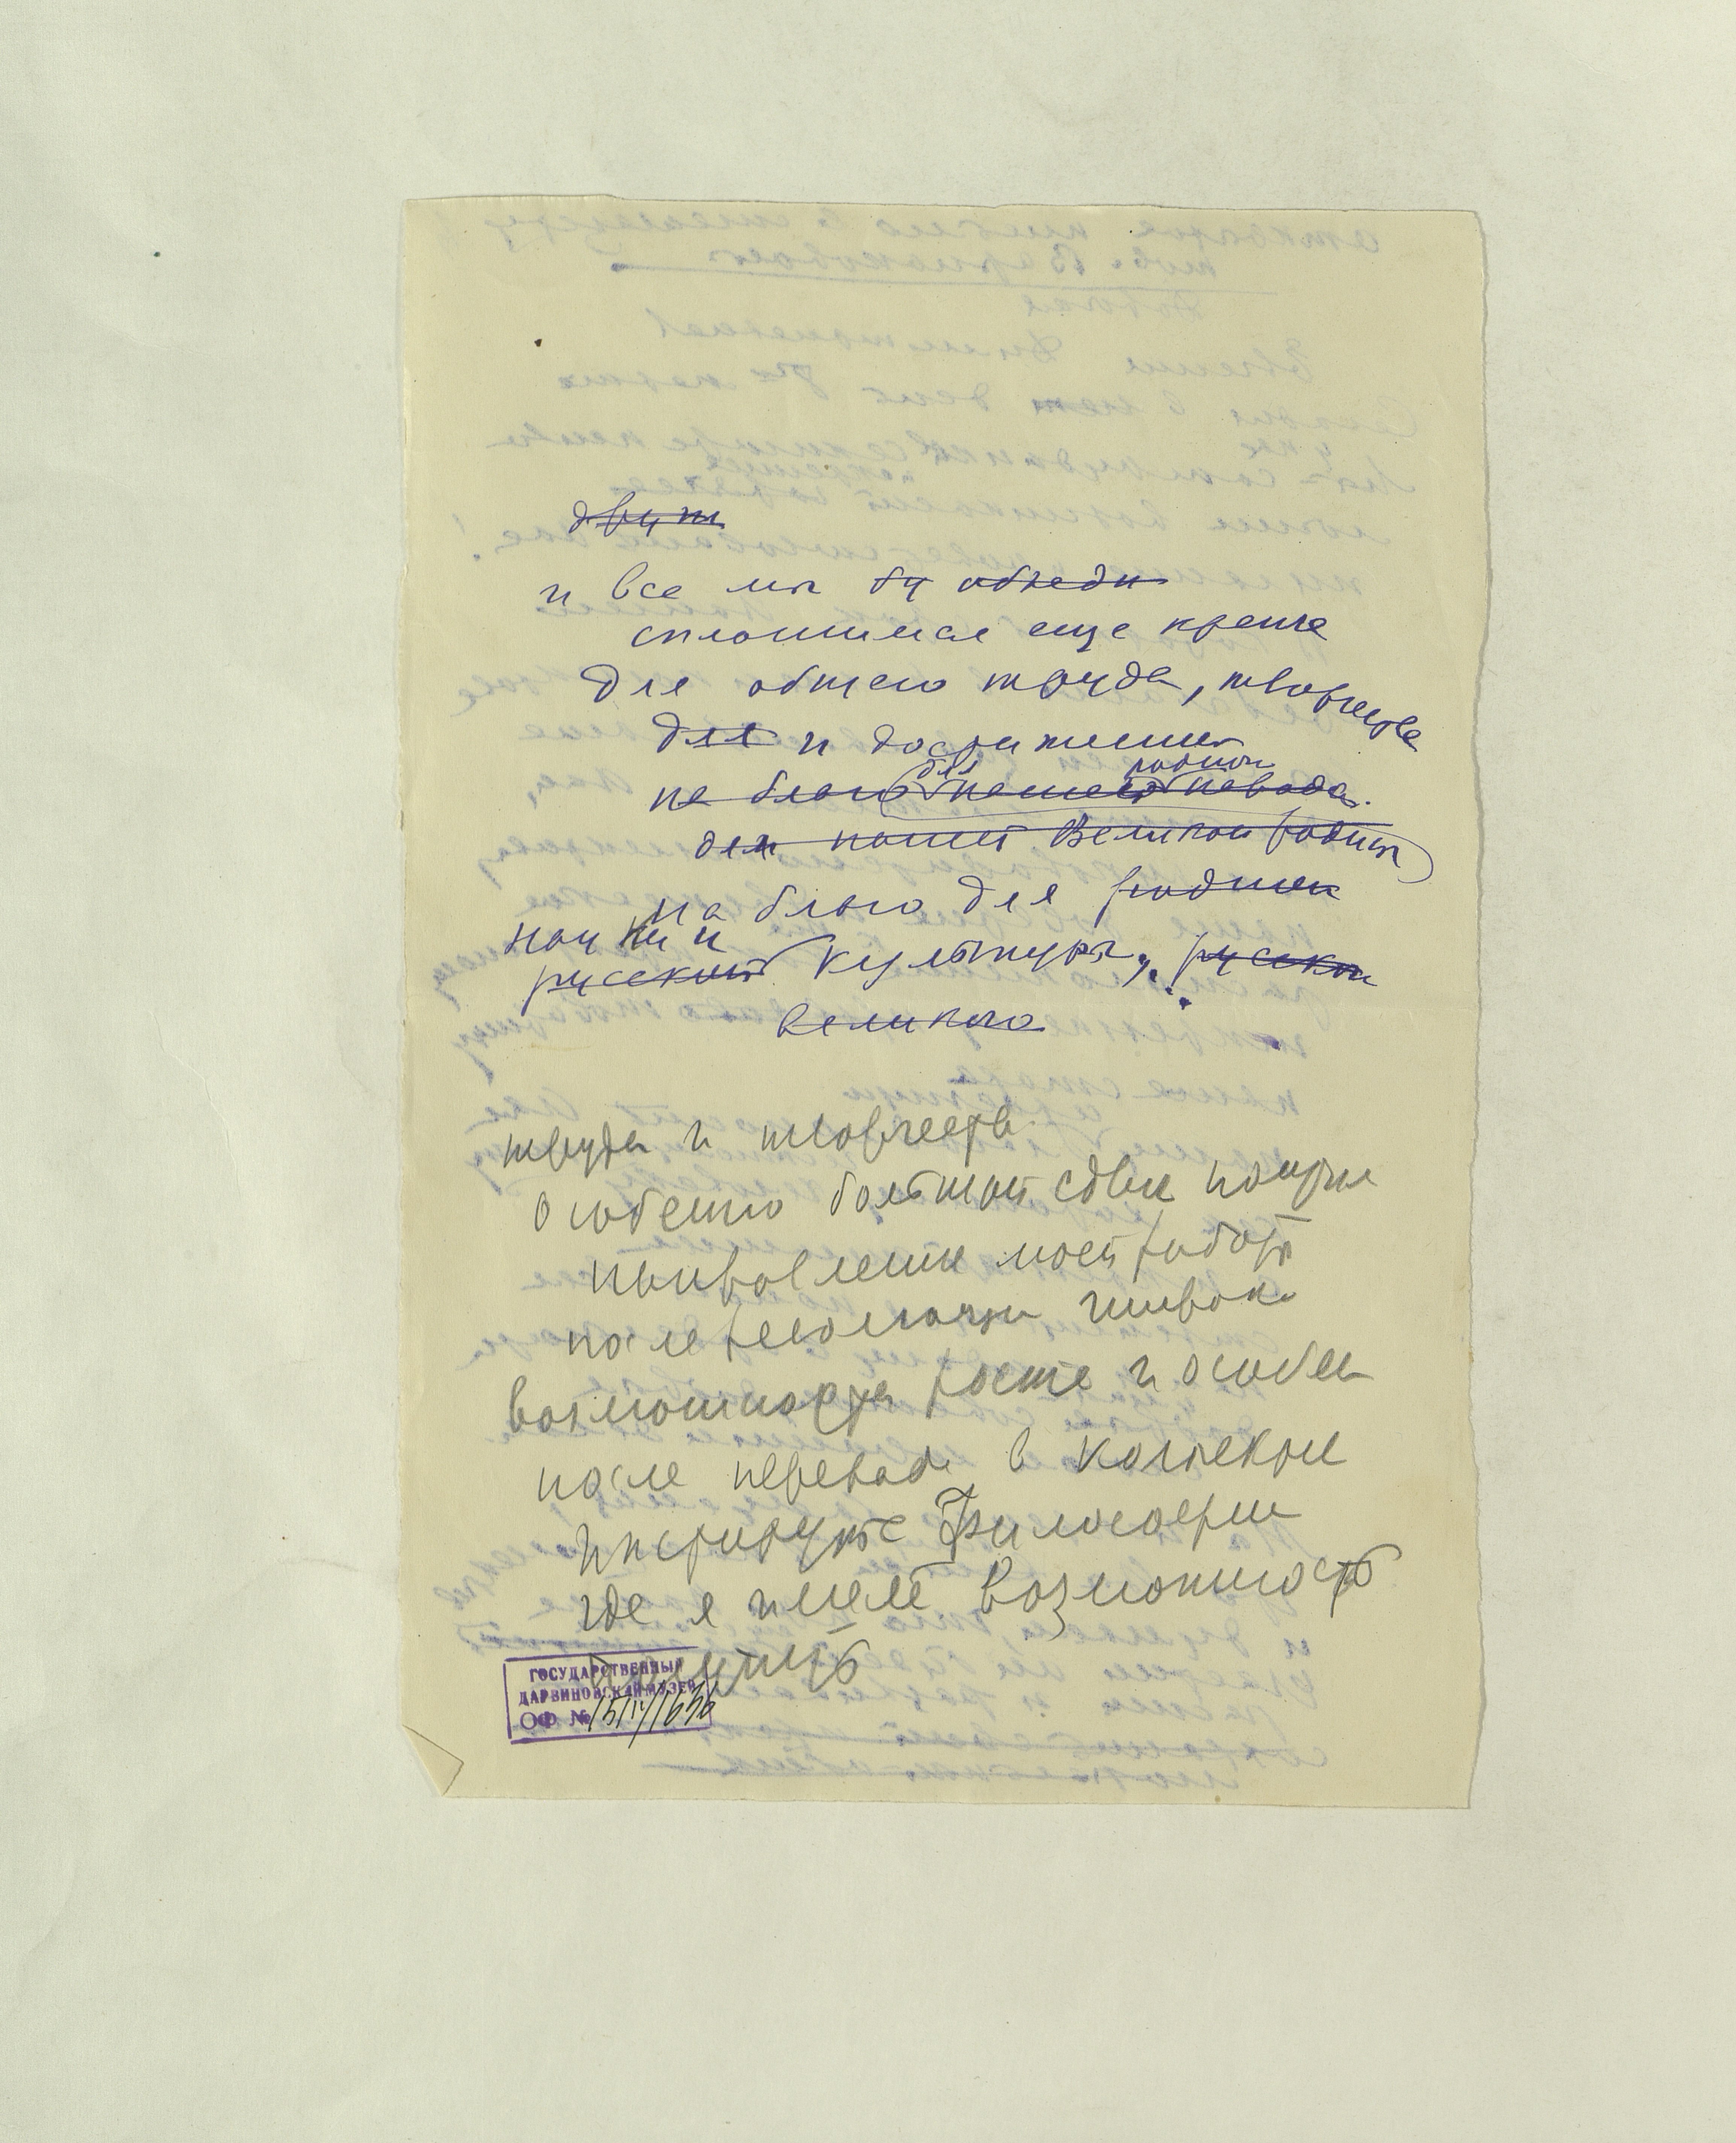 и все мы бу объеди
сплотимся еще крепче
для общего труда, творчества
для и достижений
на благо для нашего родной народа.
для нашей Великой родины
на благо для родины
науки и
русской культуры, русской
великого
труда и творчества.
Особенно большой сдвиг
направлении моей работы
после революции широк
возможности роста и особен
после перевода в коллектив
Института Философии
где я имела возможность
ГОСУДАРСТВЕННЫЙ
ДАРВИНОВСКИЙ МУЗЕЙ
ОФ №